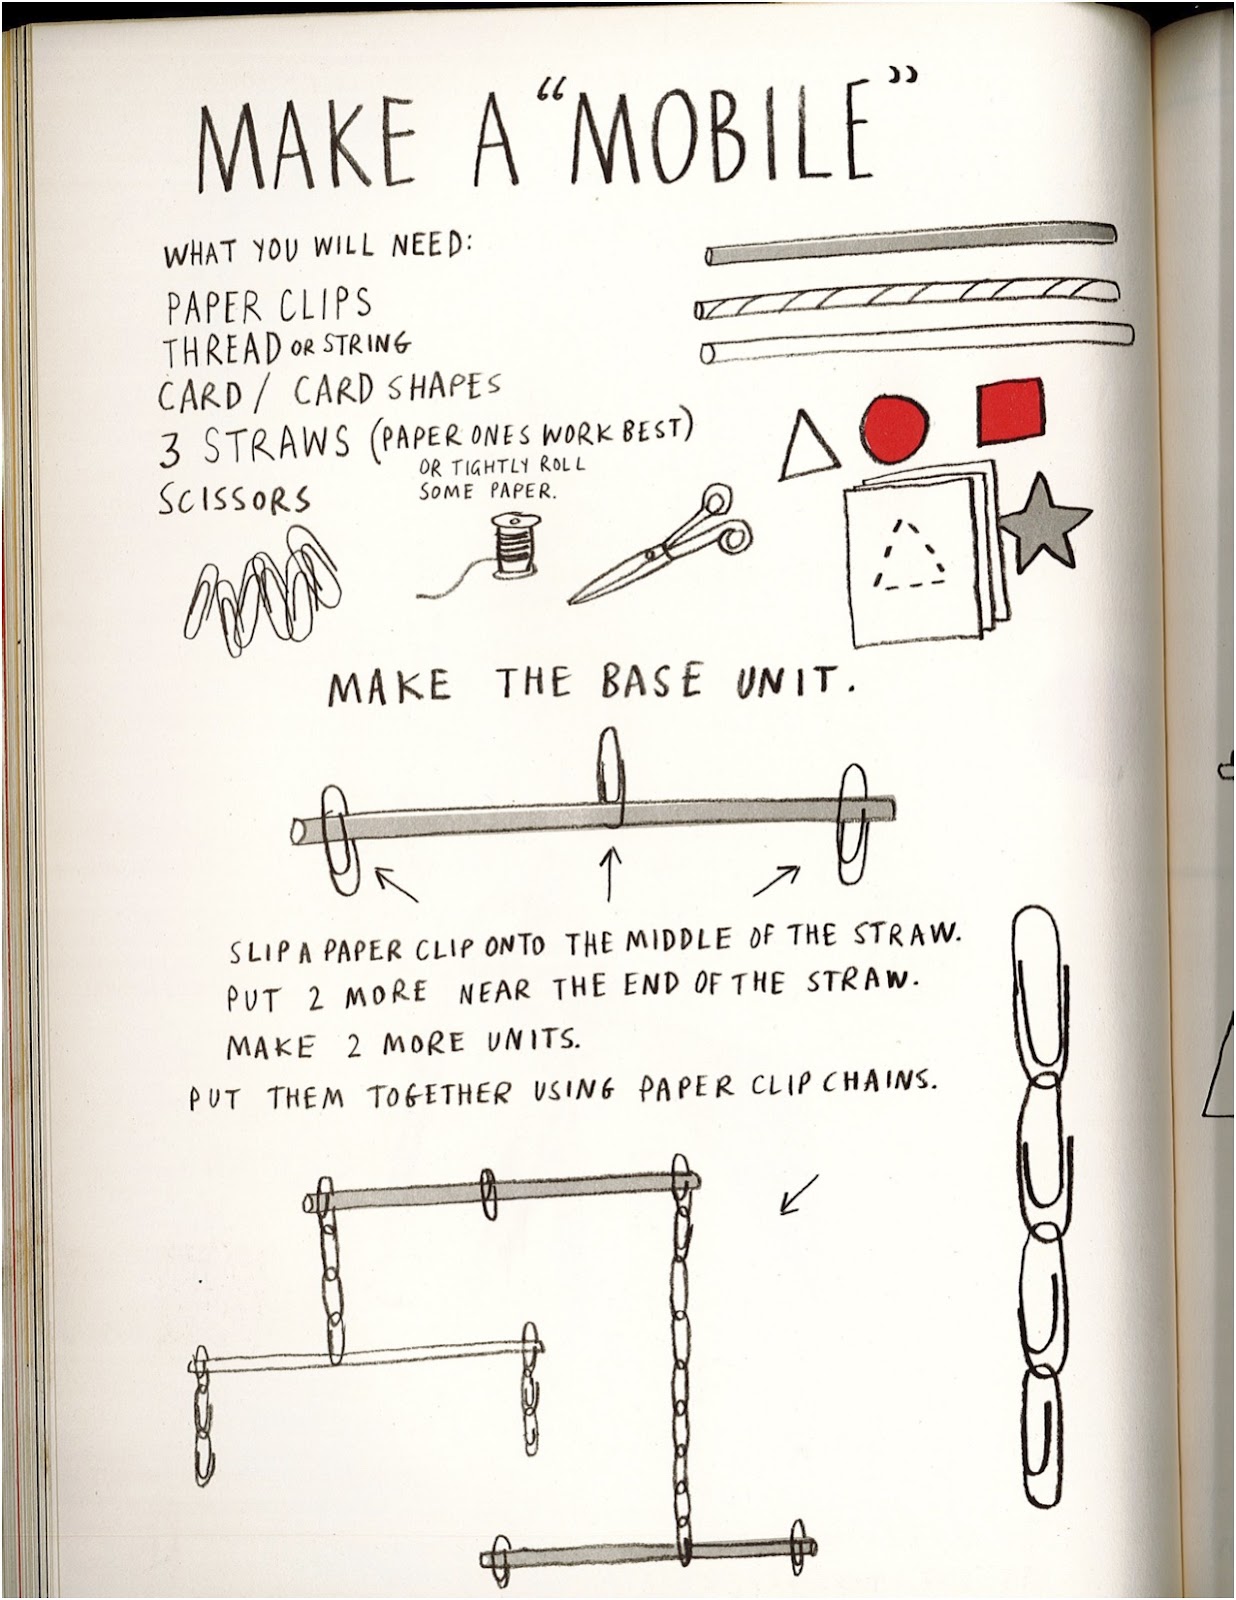 MAKE A "MOBILE"
WHAT YOU WILL NEED:
PAPER CLIPS
THREAD OR STRING
CARD / CARD SHAPES
3 STRAWS (PAPER ONES WORK BEST)
OR TIGHTLY ROLL
SOME PAPER.
SCISSORS
MAKE THE BASE UNIT.
SLIP A PAPER CLIP ONTO THE MIDDLE OF THE STRAW.
PUT 2 MORE NEAR THE END OF THE STRAW.
MAKE 2 MORE UNITS.
PUT THEM TOGETHER USING PAPER CLIP CHAINS.